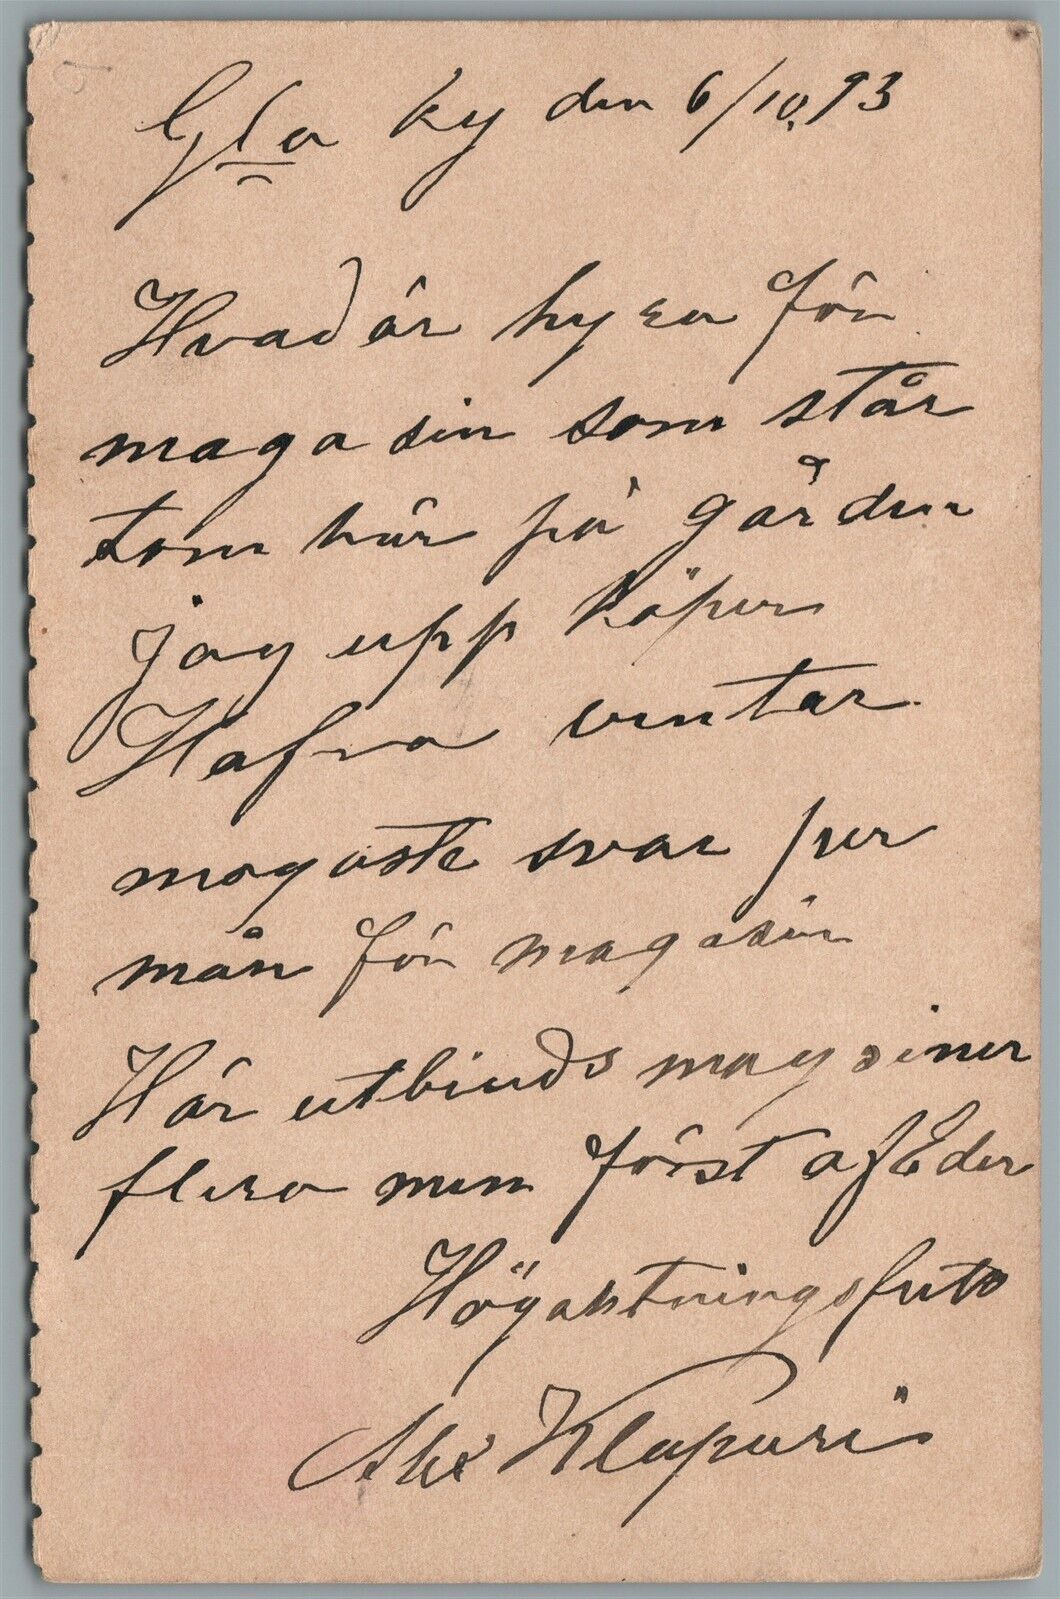 Gla ky den 6/10.93
Hvad är hyra för
magasin som står
tom här på gården
jag upp köper
Hafra väntar
magoste svar per
mån för magasin
Här utbiuds magsiner
flera men först af Eder
Högaktningsfult
Alex Klapuri